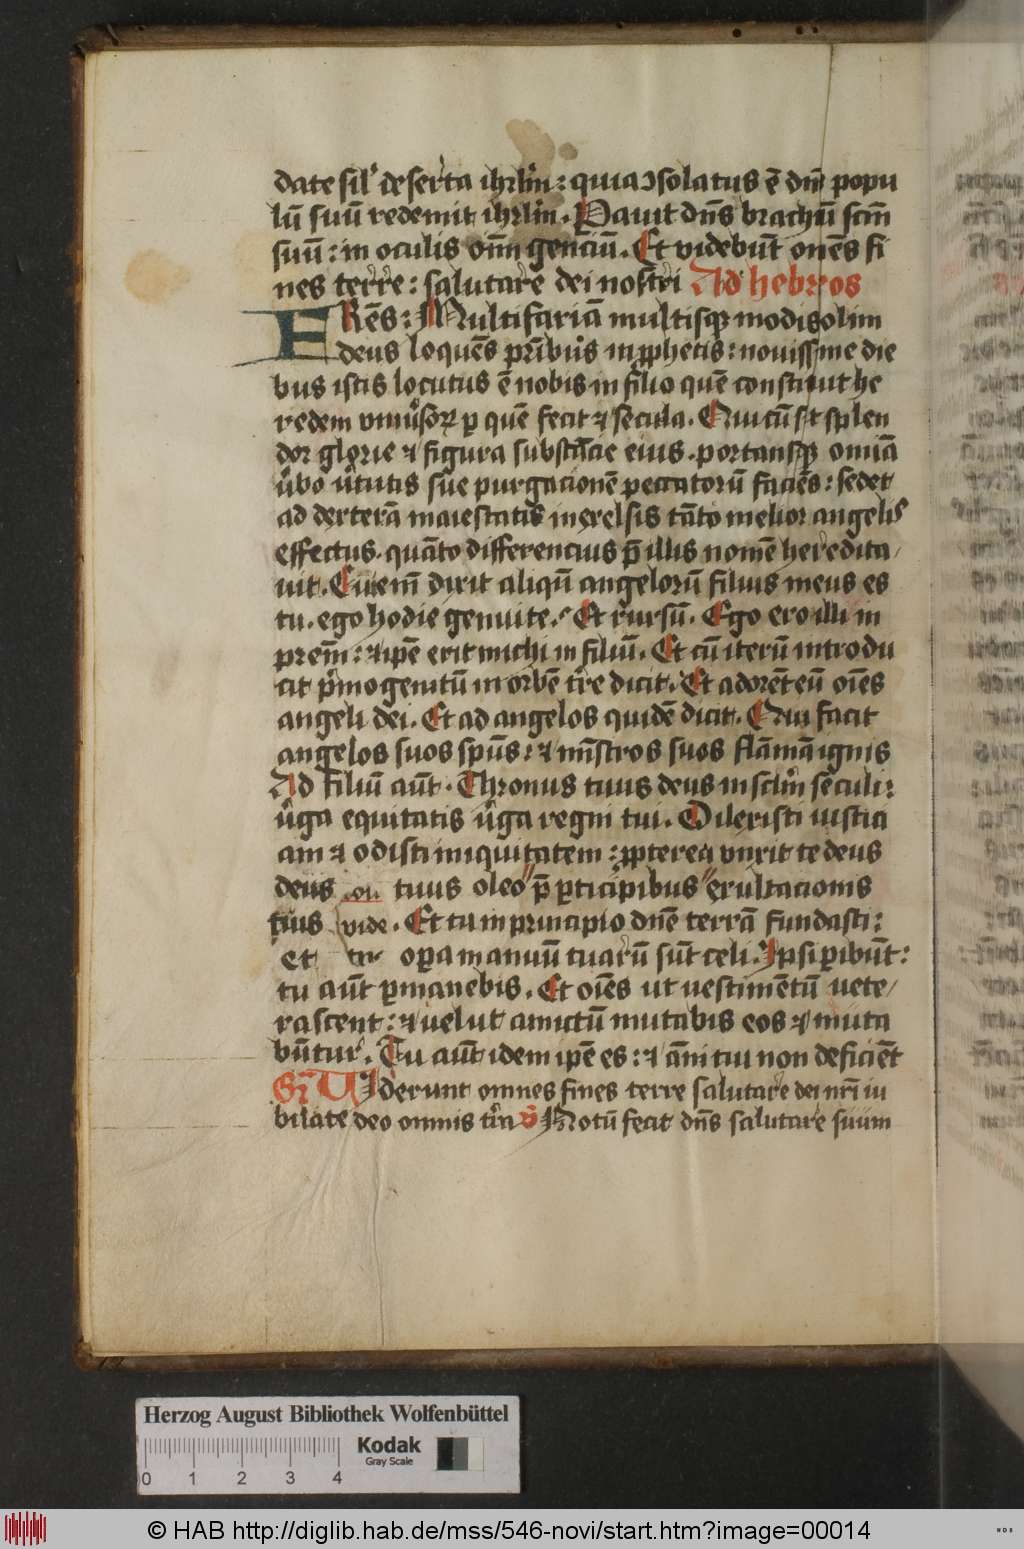 date silꝰ deserta ihrlm̄: quia ↄsolatus ē dn̄s popu
lū suū redemit ihrlm̄. Pauit dn̄s brachiū scm̄
suū: in oculis om̄ genciū. Et videbūt om̄es fi
nes terre: salutare dei nostri Ad hebreos
FRēs: Multifariā multisqꝫ modis olim
deus loquēs pr̄ibus in ꝓphetis: nouissime die
bus istis locutus ē nobis in filio quē constituit he
redem vniūsoꝝ ꝑ quē fecit ⁊ secula. Qui cū sit splen
dor glorie ⁊ figura substācie eius. portansqꝫ omīa
ūbo ūtutis sue purgacionē peccatorū faciēs: sedet
ad dexterā maiestatis in exelsis tāto melior angelis
effectus. quāto differencius p̄ illis nomē heredita
uit. Cui em̄ dixit aliqn̄ angelorū filius meus es
tu. ego hodie genui te. Et rursū. Ego ero illi in
prem̄: ⁊ ipē erit michi in filiū. Et cū iterū introdu
cit pͥmogenitū in orbē tr̄e dicit. Et adorēt eū oīes
angeli dei. Et ad angelos quidē dicit. Qui facit
angelos suos sp̄us: ⁊ mīstros suos flāmā ignis
Ad filiū aūt. Thronus tuus deus in sclm̄ seculi:
ūga equitatis ūga regni tui. Dilexisti iusticia
am ⁊ odisti iniquitatem: ꝓpterea vnxit te deus
deus tuus oleo p̄ ꝑticipibus exultacionis
tuis vide. Et tu in principio dn̄e terrā fundasti:
et oꝑa manuū tuarū sūt celi. Ipsi ꝑibūt:
tu aūt ꝑmanebis. Et oīes ut uestimētū uete
rascent: ⁊ uelut amictū mutabis eos ⁊ muta
būtur. Tu aūt idem ipē es: ⁊ āni tui non deficiēt
Gr̄ Viderunt omnes fines terre salutare dei nr̄i iu
bilate deo omnis tr̄a v̄ Notū fecit dn̄s salutare suum
Herzog August Bibliothek Wolfenbüttel
Kodak
Gray Scale
0 1 2 3 4
© HAB http://diglib.hab.de/mss/546-novi/start.htm?image=00014